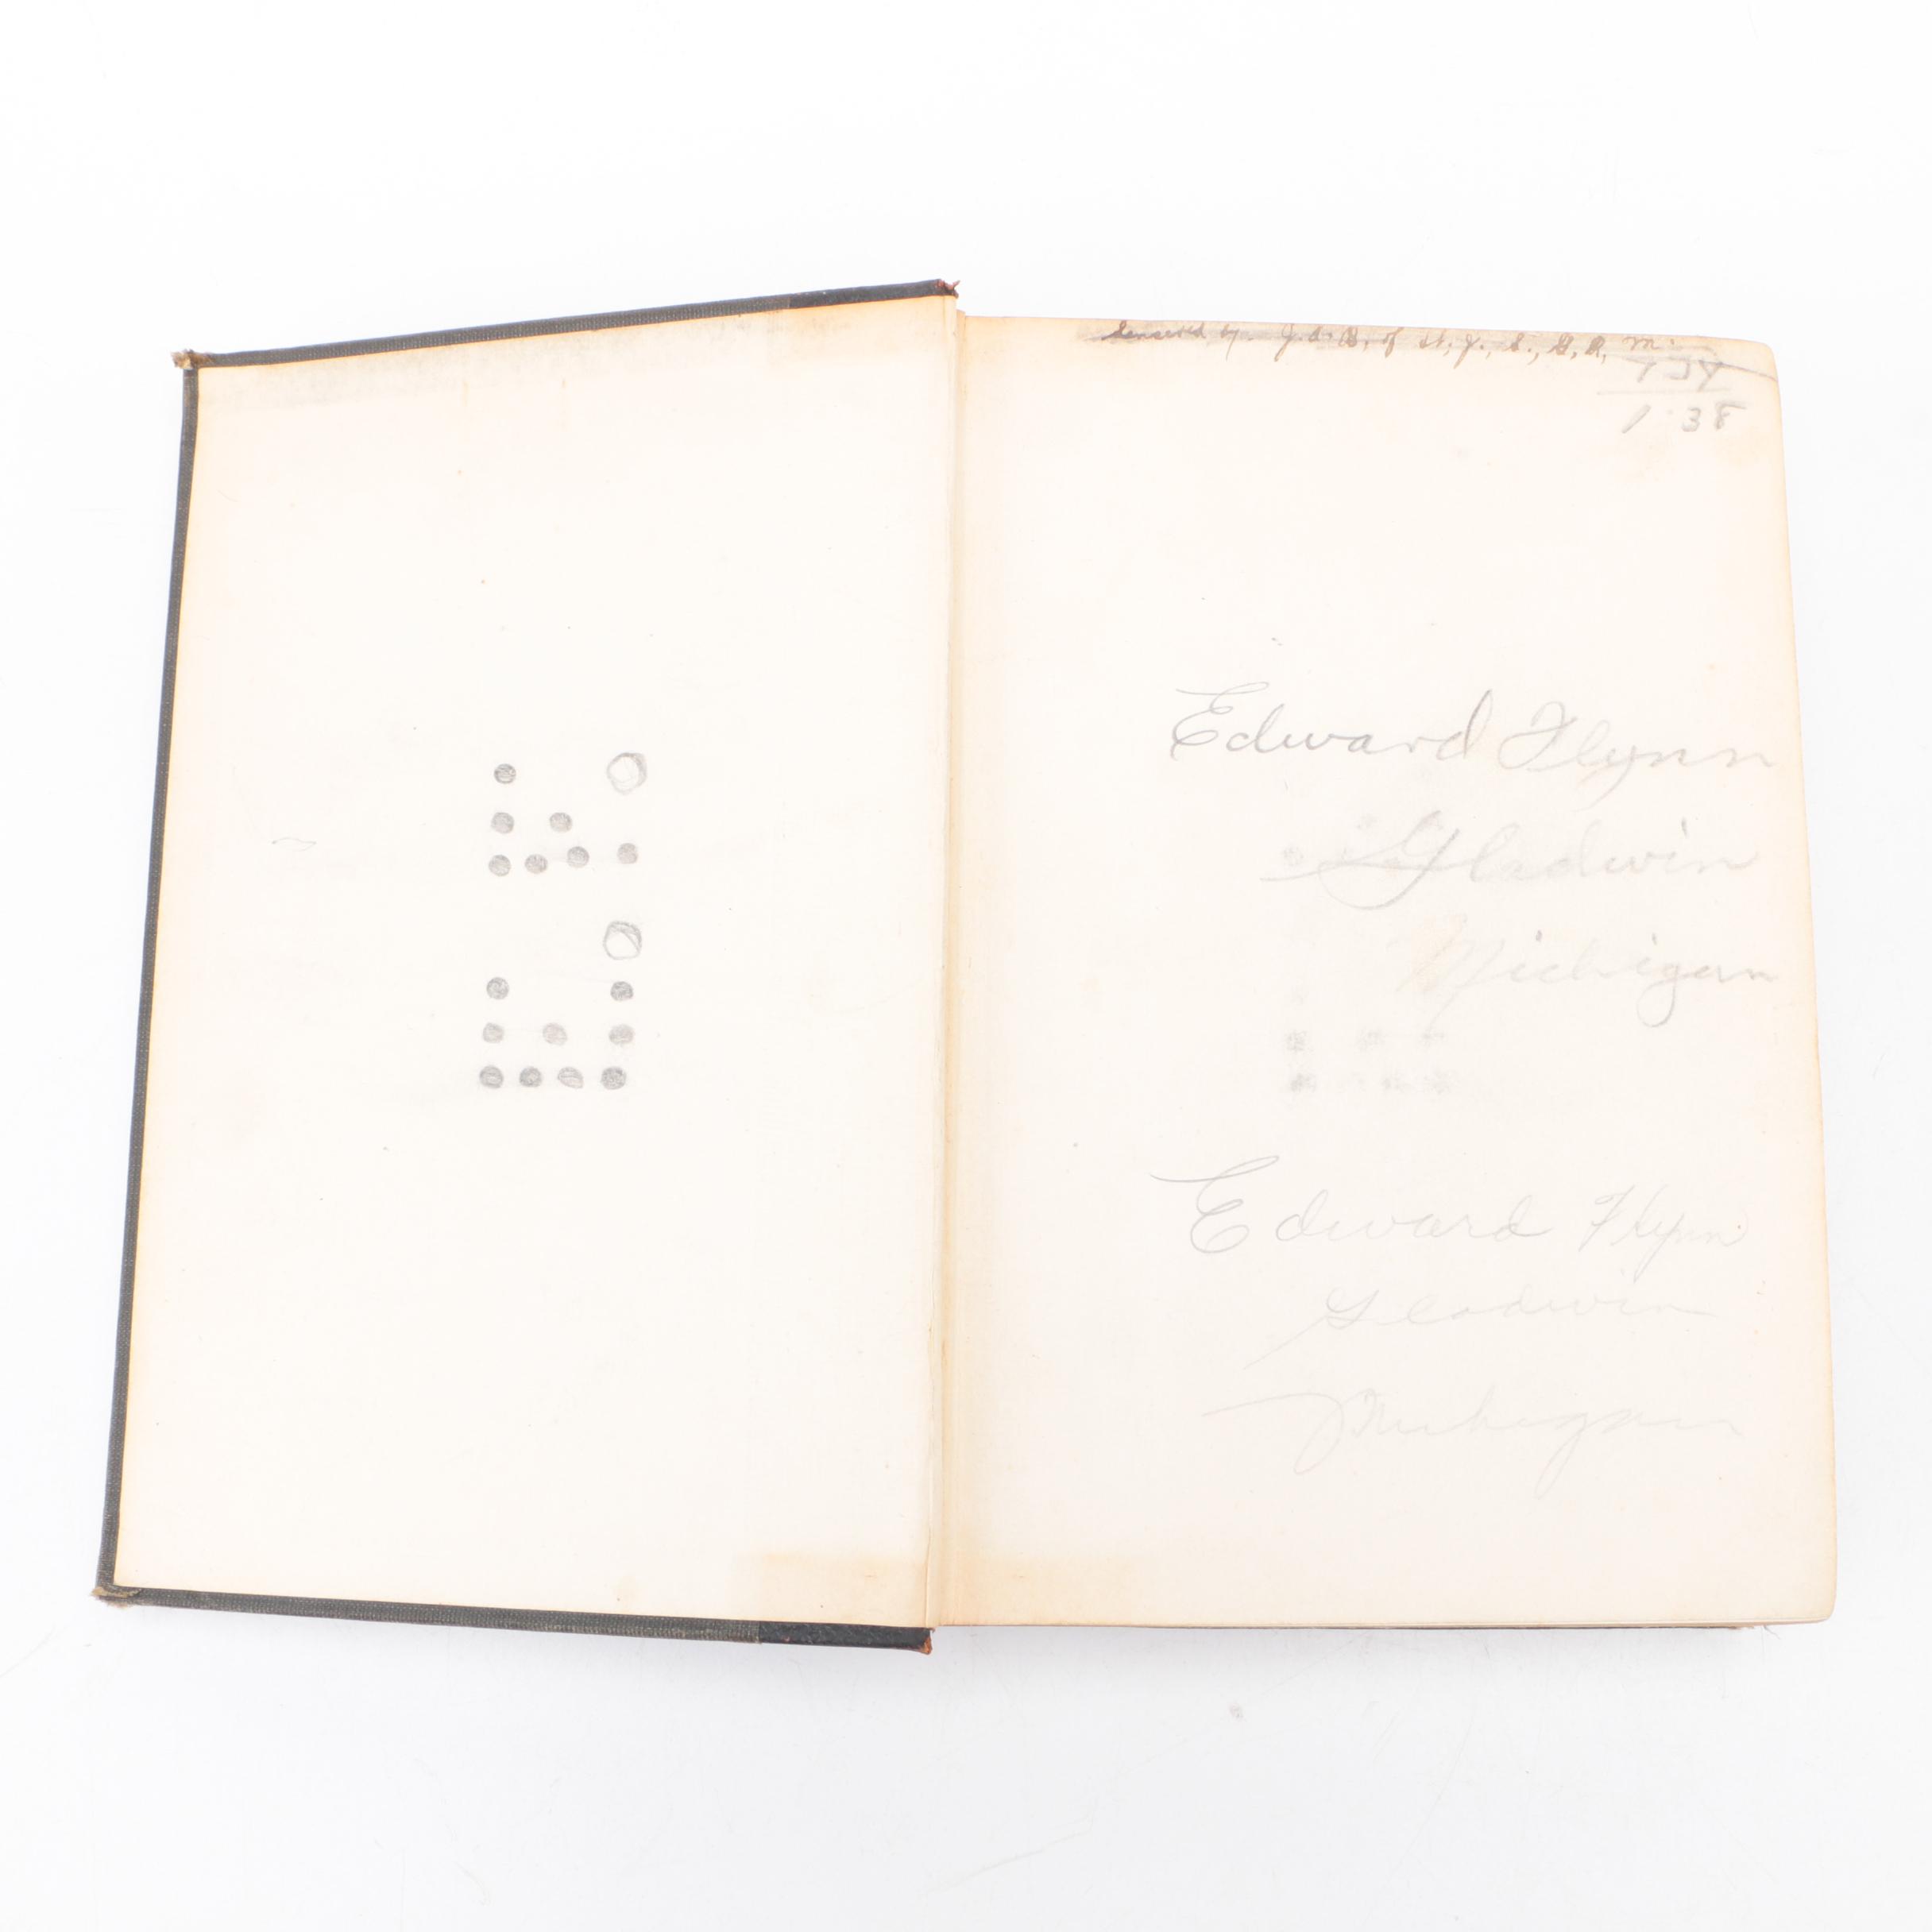 by. J. A. B. of St. J., S., G. R. M.
1.38
Edward Flynn
Gladwin
Michigan
Edward Flynn
Gladwin
Michigan